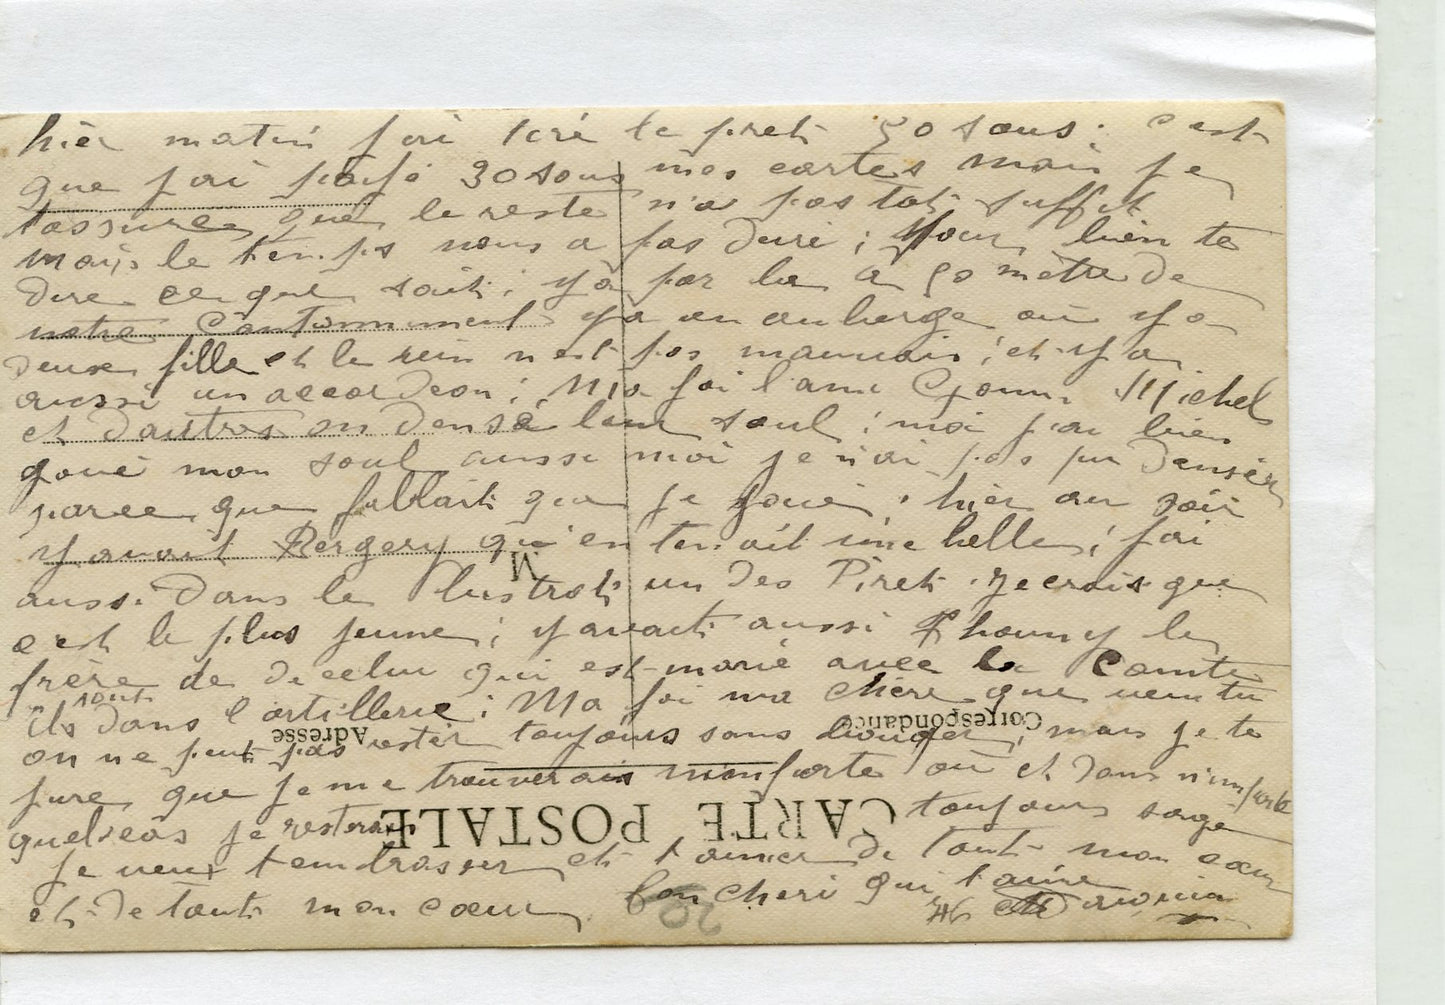 hièr matin j'ai tiré le pret 50 sous. c'est
que j'ai payé 30 sous mes cartes mais je
tassure que le reste n'a pas tot suffit
mais le temps nous a pas duré ; pour bien te
dire ce que sait ; y a par la a 50 mètre de
notre Cantonnement y a un auberge ou y a
deux fille et le vin n'est pas mauvais ; et y a
aussi un accordeon ; Ma foi l'ami Michel
et d'autres on densé leur soul ; moi j'ai bien
goué mon soul aussi moi je n'ai pas pu densér
parce que fallait que je goué ; hièr au soir
y avait Rergery qu'en tenait une belle ; j'ai
aussi dans le un des Piret je crois que
c'est le plus jeune ; y avait aussi le
frère de de celui qui est marié avec la
ils sont dans l'artillerie ; Ma foi ma chère que veux tu
on ne peut pas restér toujours sans bouger ; mais je te
jure que je me trouverais n'importe ou et dans n'importe
quel cas je resterais toujours sage
je veux t'embrasser et t'aimer de tout mon cœur
et de tout mon cœur ton cheri qui t'aime
M
Correspondance
Adresse
CARTE POSTALE
20